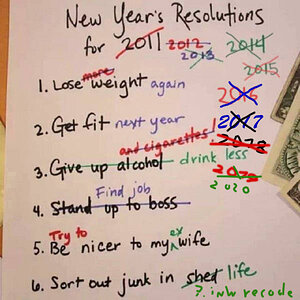 New Year's Resolutions
for 2011 2012 2014
2013
2015
more
1. Lose weight again
2016
2. Get fit next year 2017
and cigarettes! 2018
3. Give up alcohol drink less
2020
Find job
4. Stand up to boss
Try to ex
5. Be nicer to my wife
6. Sort out junk in shed life